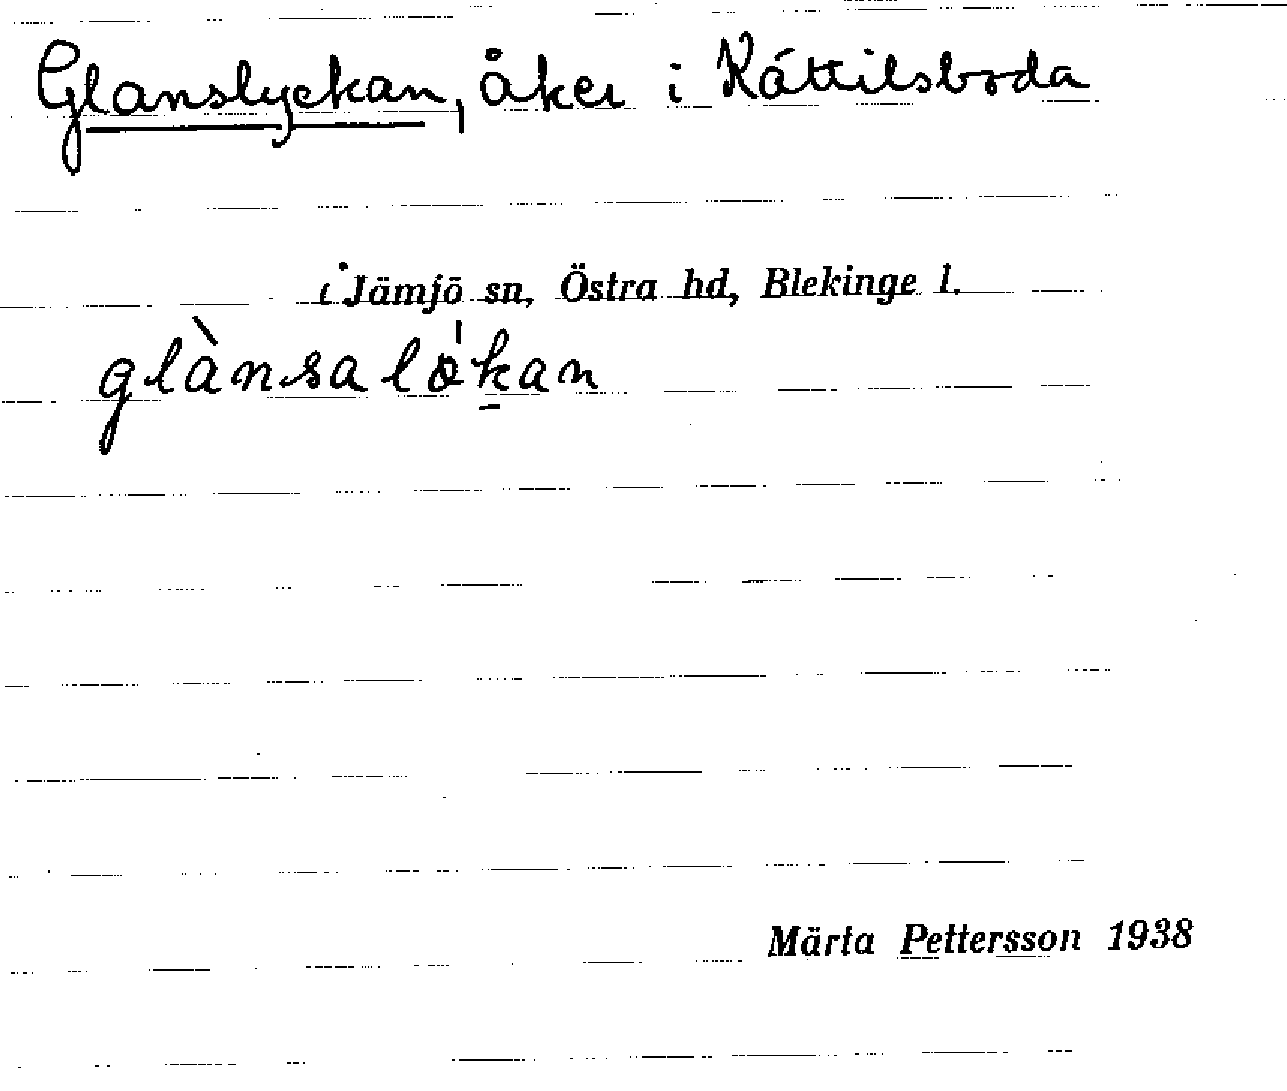 Glanslyckan, åker i Káttilsboda
i Jämjö sn, Östra hd, Blekinge l.
glànsaló̵ḵan
Märta Pettersson 1938